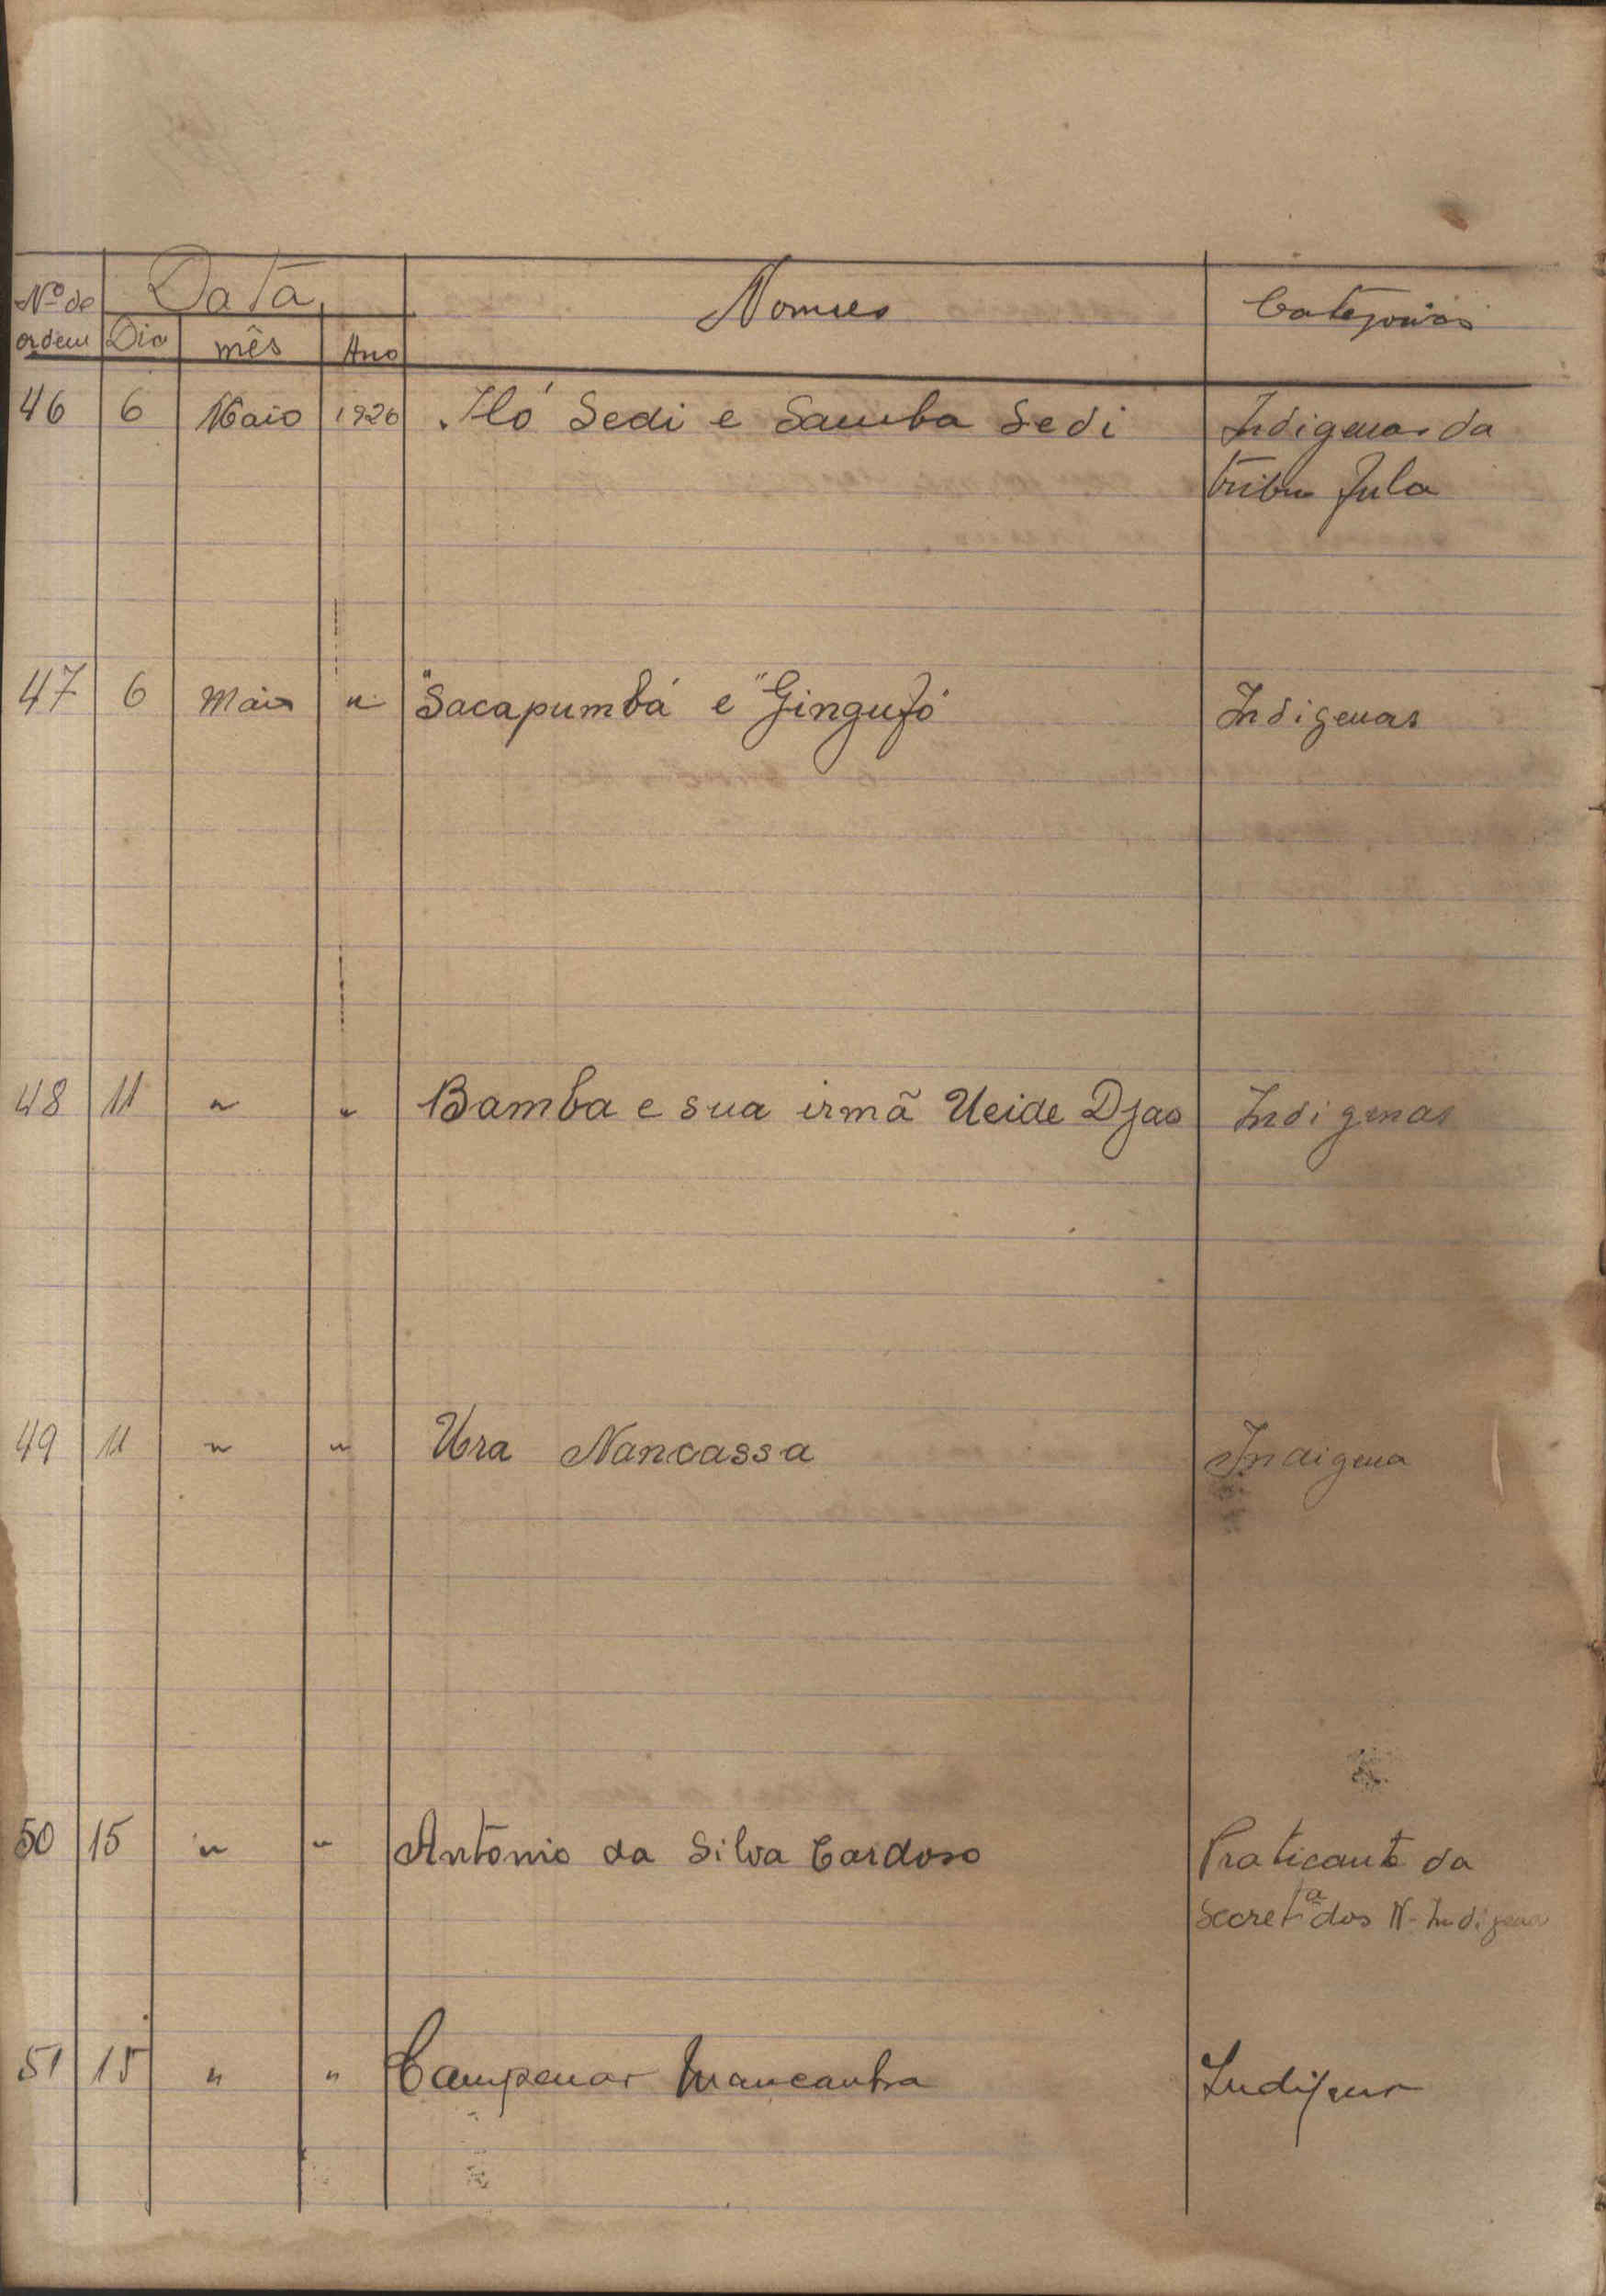 Nº de ordem Data Nomes Categorias
Dia mês Ano
46 6 Maio 1926 Iló Sedi e Samba Sedi Indigenas da
tribu Fula
47 6 Maio " "Sacapumbá e "Gingufó Indigenas
48 11 " " Bamba e sua irmã Ueide Djao Indigenas
49 11 " " Ura Nancassa Indigena
50 15 " " António da Silva Cardoso Praticante da
Secretª dos N. Indigenas
51 15 " " Campenar Mancanha Indigena